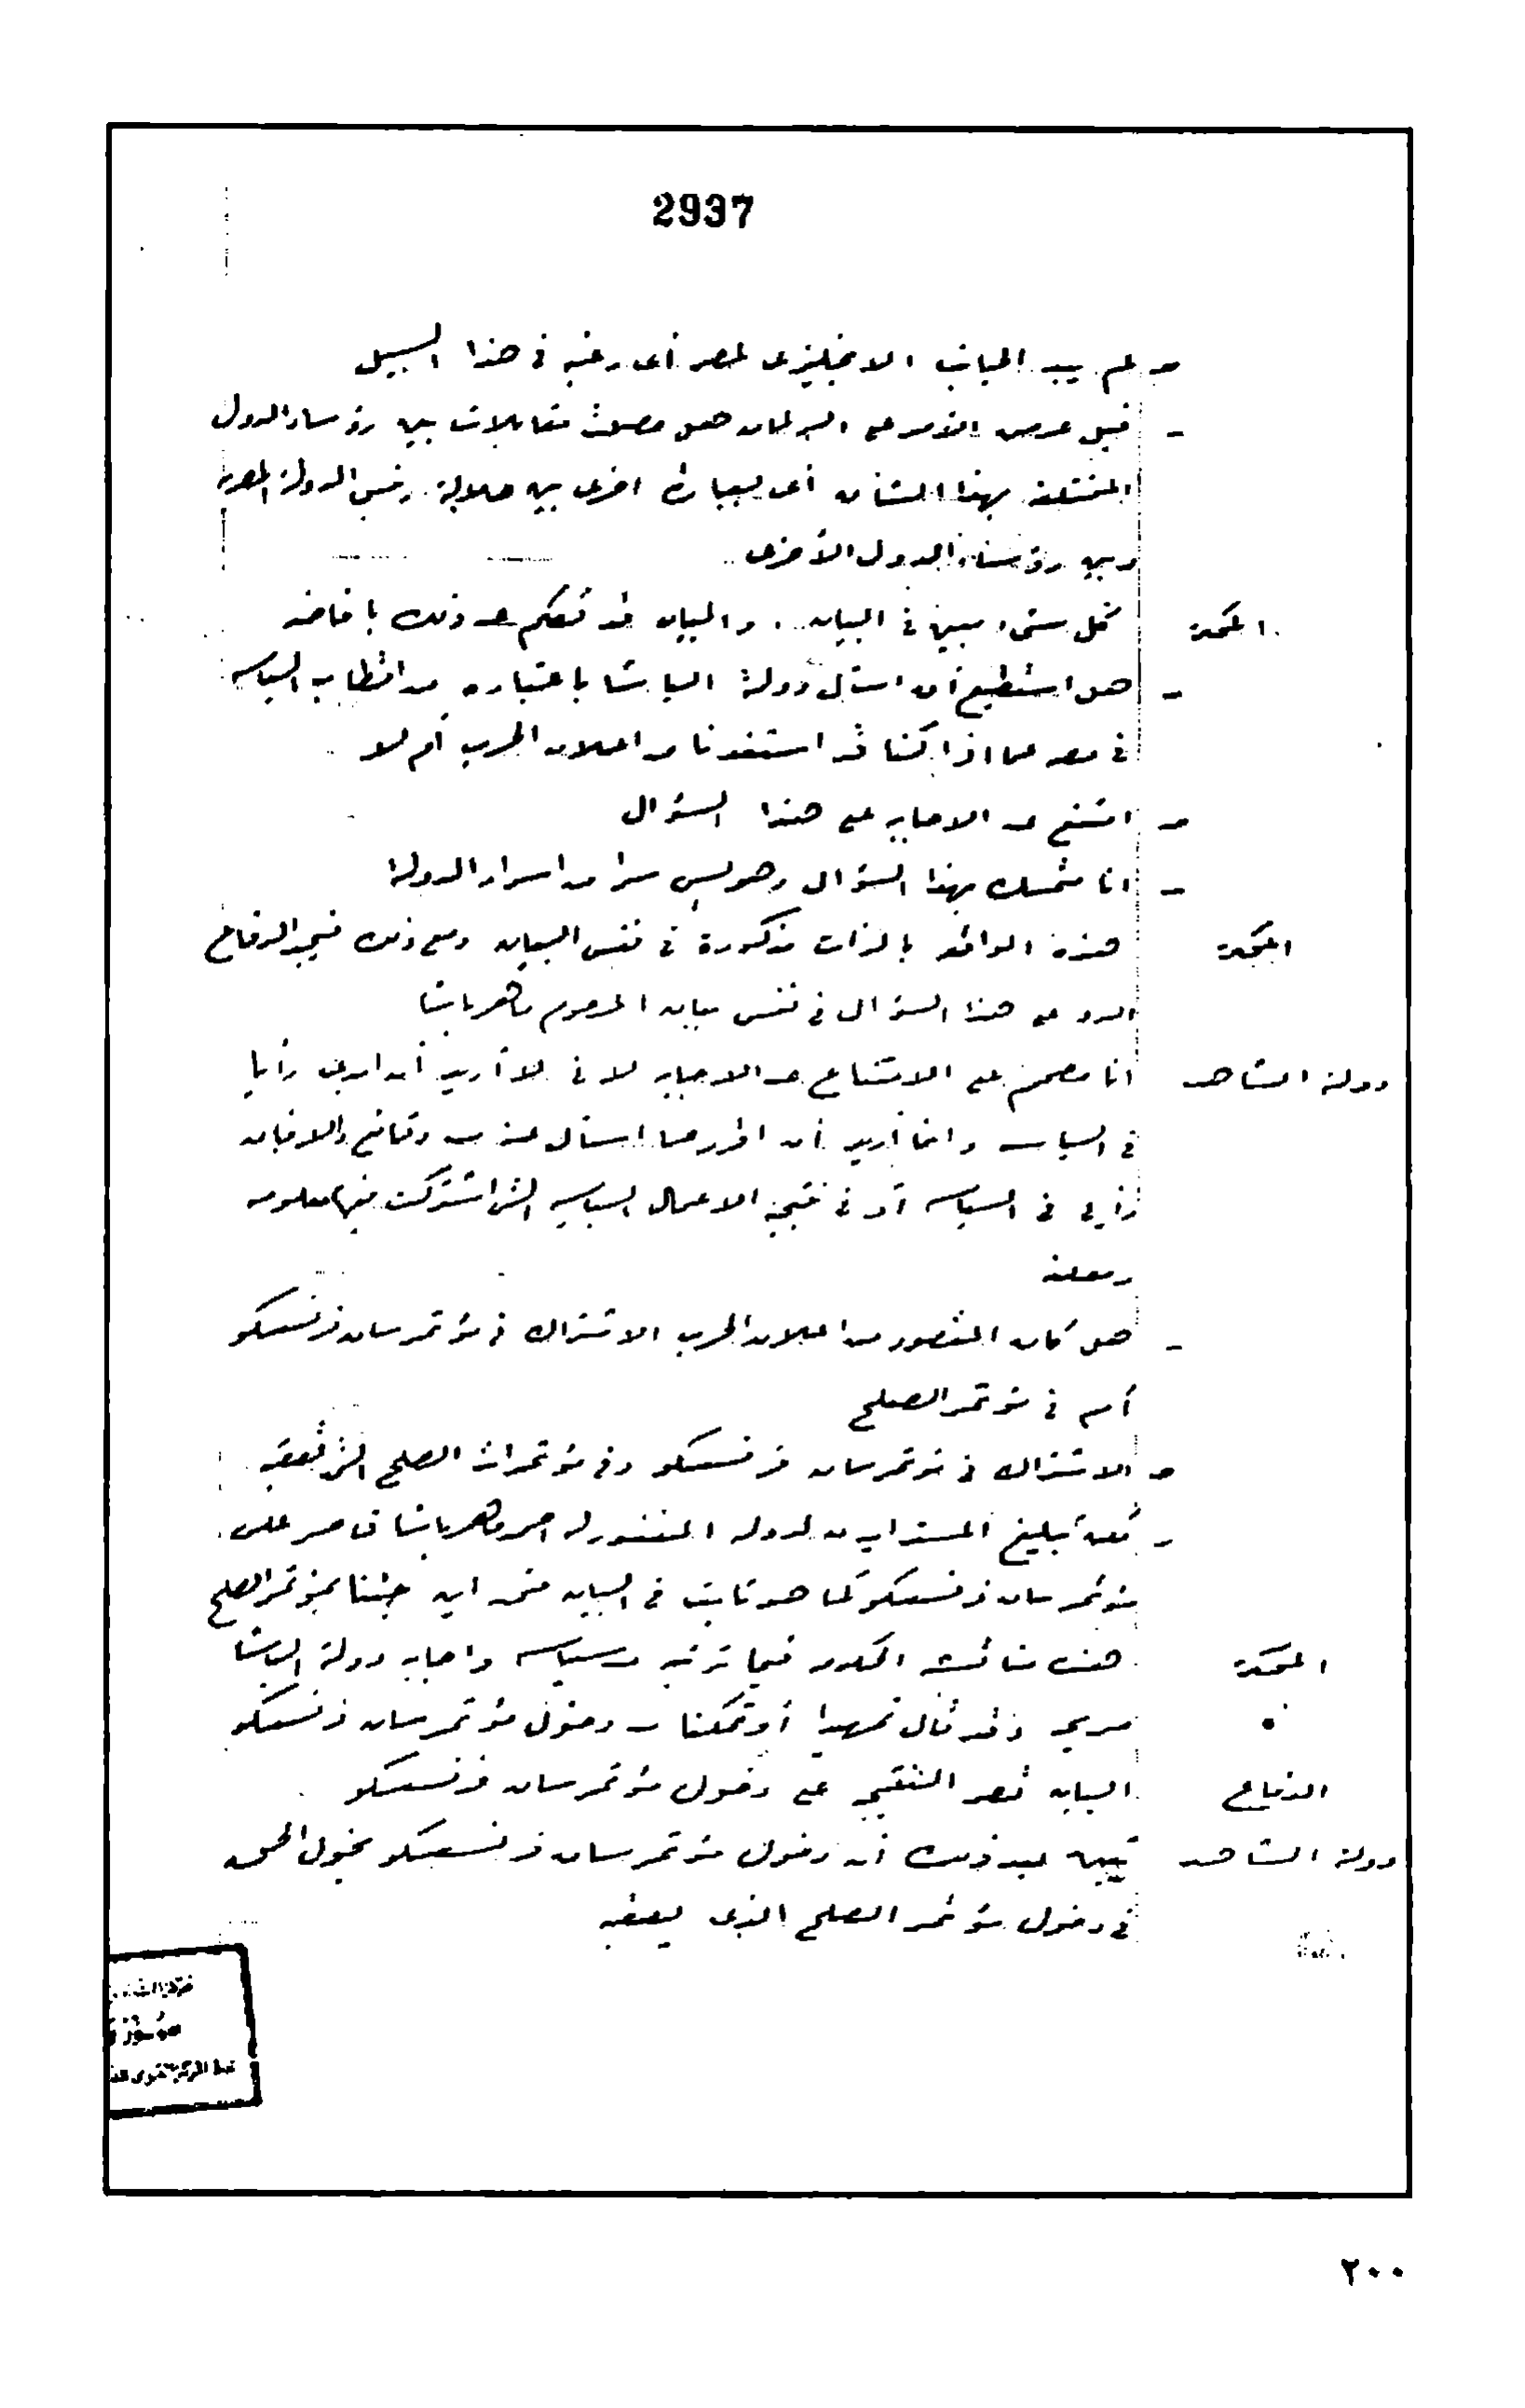 2937
ـ لم يبد الجانب الانجليزى لمصر أى رغبه فى هذا السبيل
ـ قبل عرض الأمر على البرلمان هل حصلت مقابلات بين رؤساء الدول
المختلفة بهذا الشأن أى بعبارة اخرى بين جلالة رئيس الدولة المصرية
وبين رؤساء الدول الأخرى
المحكمة كل شىء مبين فى البيان . والبيان قد تكلم عن ذلك بافاضه
ـ هل استطيع أن اسأل دولة الباشا باعتباره من اقطاب السياسه
فى مصر عما اذا كنا قد استفدنا من اعلان الحرب أم لا
ـ امتنع عن الاجابه على هذا السؤال
ـ انا متمسك بهذا السؤال وهو ليس سرا من اسرار الدولة
المحكمة هذه الواقعه بالذات مذكورة فى نفس البيان ومع ذلك فيجد الدفاع
الرد على هذا السؤال فى نفس بيان المرحوم ماهر باشا
دولة الشاهد انا مصمم على الامتناع عن الاجابه لانى لا أريد أن ابدى رأيا
فى السياسه وانما أريد أن اقرر ما اسأل عنه من وقائع والا فان
رأيى فى السياسه أو فى نتيجه الاعمال السياسيه التى اشتركت فيها معلومه
ومعلنه
ـ هل كان المقصود من اعلان الحرب الاشتراك فى مؤتمر سان فرنسسكو
أم فى مؤتمر الصلح
ـ الاشتراك فى مؤتمر سان فرنسسكو وفى مؤتمرات الصلح التى تعقبه
ـ تبليغ المستر ايدن لدولة المغفور له احمد ماهر باشا قاصر على
مؤتمر سان فرنسسكو كما هو ثابت فى البيان فمن اين جئنا بمؤتمر الصلح
المحكمة هنا مناقشه الحكومه فيما ترتبه من سياسه واجابه دولة الباشا
صريحه وقد قال تمهيدا أو تمكينا من دخول مؤتمر سان فرنسسكو
الدفاع البيان قصر النتيجه على دخول مؤتمر سان فرنسسكو
دولة الشاهد تبين بعد ذلك أن دخول مؤتمر سان فرنسسكو يخول الحق
فى دخول مؤتمر الصلح الذى يعقبه
٢٠٠